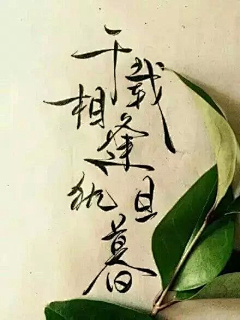 千载相逢犹旦暮